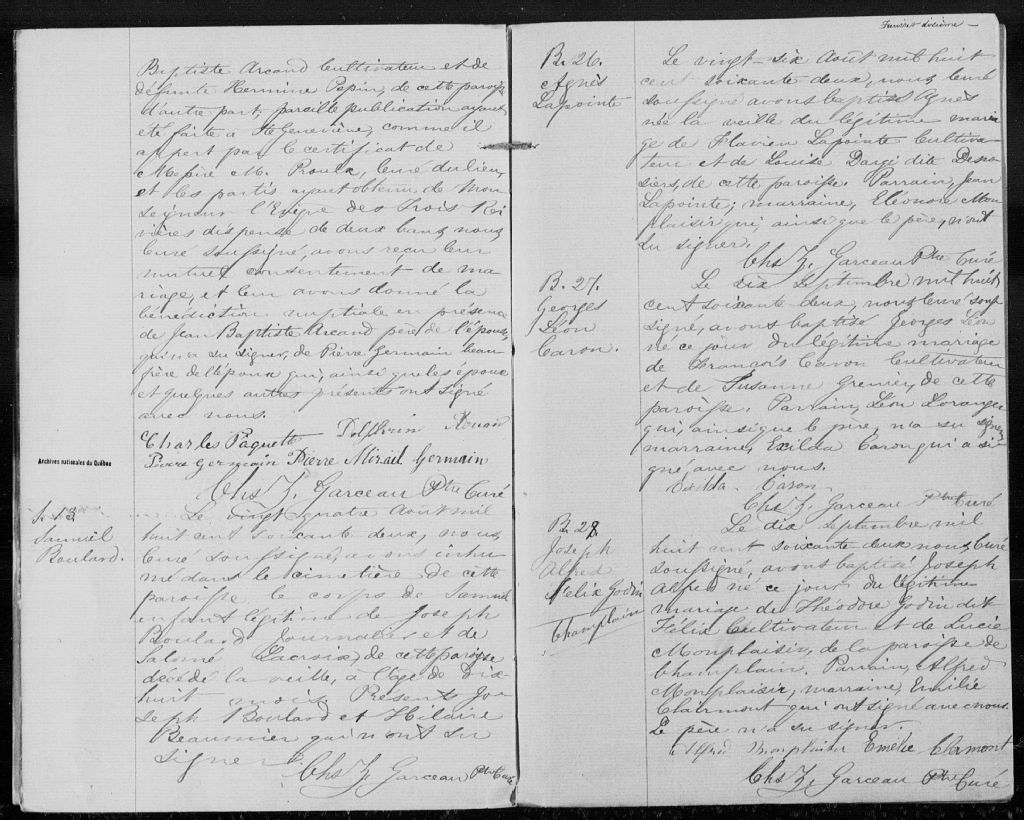 Baptiste Arcand Cultivateur et de
défunte Hermine Pepin, de cette paroisse
d'autre part, pareille publication ayant
été faite a Ste Geneviève, comme il
appert par le certificat de
Messire M. Proulx, Curé du lieu,
et les partis ayant obtenu de Mon
seigneur l'Evêque des Trois Ri
vières dispense de deux bans, nous
Curé soussigné, avons reçu leur
mutuel consentement de ma
riage, et leur avons donné la
bénédiction nuptiale en présence
de Jean Baptiste Arcand père de l'épouse,
qui n'a su signer, de Pierre Germain beau
frère de l'époux qui, ainsi que les époux
et quelques autres présents ont signé
avec nous.
Charles Paquette
Pierre Germain Pierre Germain
Chs Z. Garceau Ptre Curé
Archives nationales du Québec
S. 13
Samuel
Boulard.
Le vingt quatre Aout mil
huit cent soixante deux, nous
Curé soussigné, avons inhu
mé dans le cimetière de cette
paroisse le corps de Samuel
enfant légitime de Joseph
Boulard Journalier et de
Salomé Lacroix, de cette paroisse
décédé la veille, a l'âge de dix
huit mois. Présents Jo
seph Boulard et Hilaire
Beaumier qui n'ont su
signer
Chs Z. Garceau Ptre Curé
Feuillet sixième
B. 26.
Agnès
Lapointe
Le vingt-six Août mil huit
cent soixante-deux, nous Curé
soussigné avons baptisé Agnès
née la veille du légitime maria
ge de Flavien Lapointe Cultiva
teur et de Louise Dargi dit Desro
siers, de cette paroisse. Parrain, Jean
Lapointe; marraine, Eléonore Mon
plaisir qui, ainsi que le père, n'ont
su signer.
Chs Z. Garceau Ptre Curé
B. 27.
Georges
Léon
Caron.
Le dix Septembre mil huit
cent soixante deux, nous Curé sous
signé, avons baptisé Georges Léon
né ce jour du légitime mariage
de François Caron Cultivateur
et de Susanne Grenier, de cette
paroisse. Parrain, Léon Loranger
qui, ainsi que le père, n'a su signer,
marraine, Exilda Caron qui a si
gné avec nous.
Exilda Caron
Chs Z. Garceau Ptre Curé
B. 28.
Joseph
Alfred
Felix Godin
Champlain
Le dix Septembre mil
huit cent soixante deux nous, Curé
soussigné, avons baptisé Joseph
Alfred né ce jour du légitime
mariage de Théodore Godin dit
Félix Cultivateur et de Lucie
Monplaisir, de la paroisse de
Champlain. Parrain, Alfred
Monplaisir, marraine, Emilie
Clairmont qui ont signé avec nous.
Le père n'a su signer.
Alfred Monplaisir Emélie Clermont
Chs Z. Garceau Ptre Curé